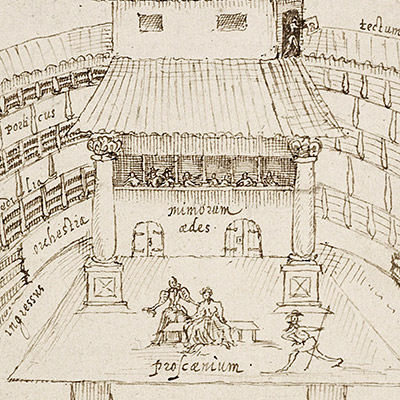 tectum
porticus
mimorum
ædes.
orchestra
ingressus
proscænium.